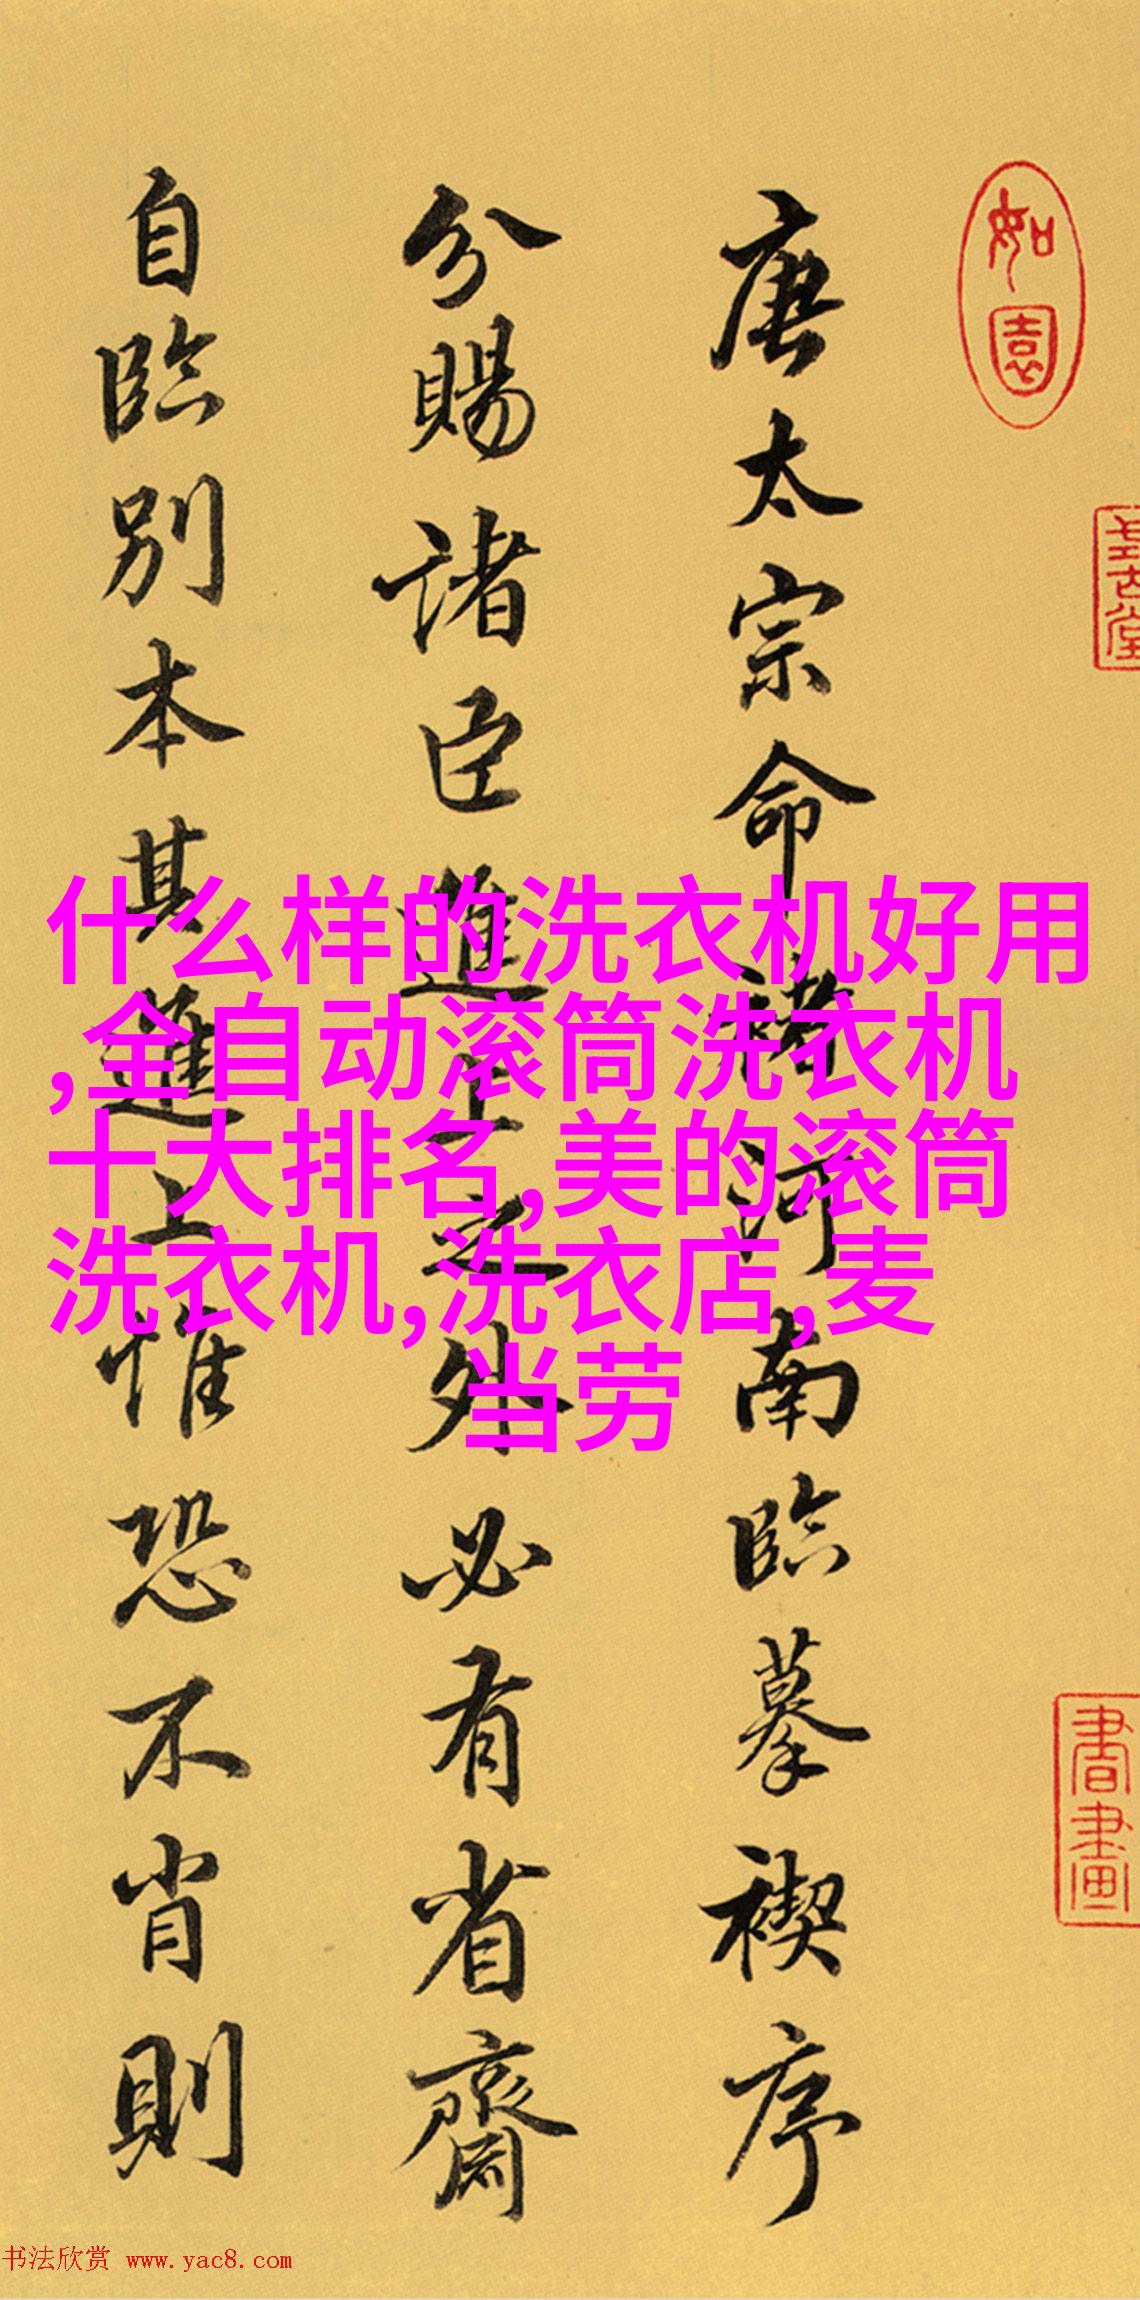 唐太宗命褚河南臨摹禊序
分賜諸臣進上之外必有省齋
自臨別本其進上惟恐不肖則
如園
書畫
什么样的洗衣机好用
,全自动滚筒洗衣机
十大排名,美的滚筒
洗衣机,洗衣店,麦
当劳
书法欣赏 www.yac8.com